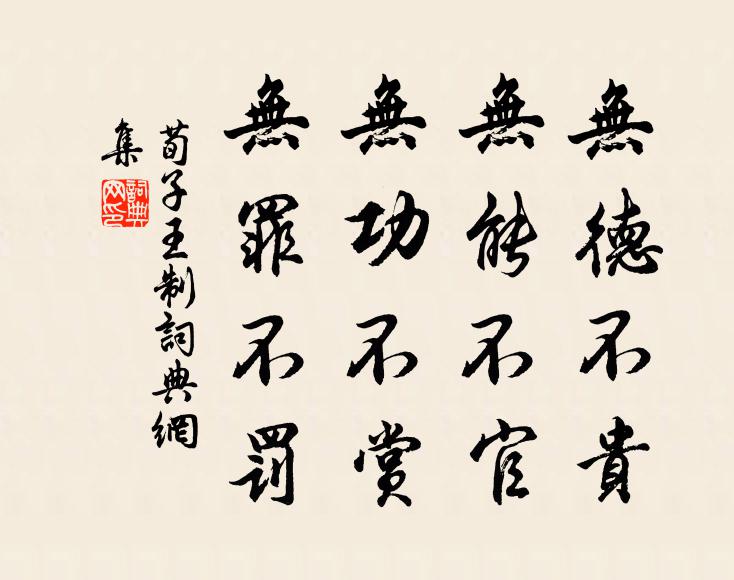 無德不貴
無能不官
無功不賞
無罪不罰
荀子王制詞典網
集
詞典
网印